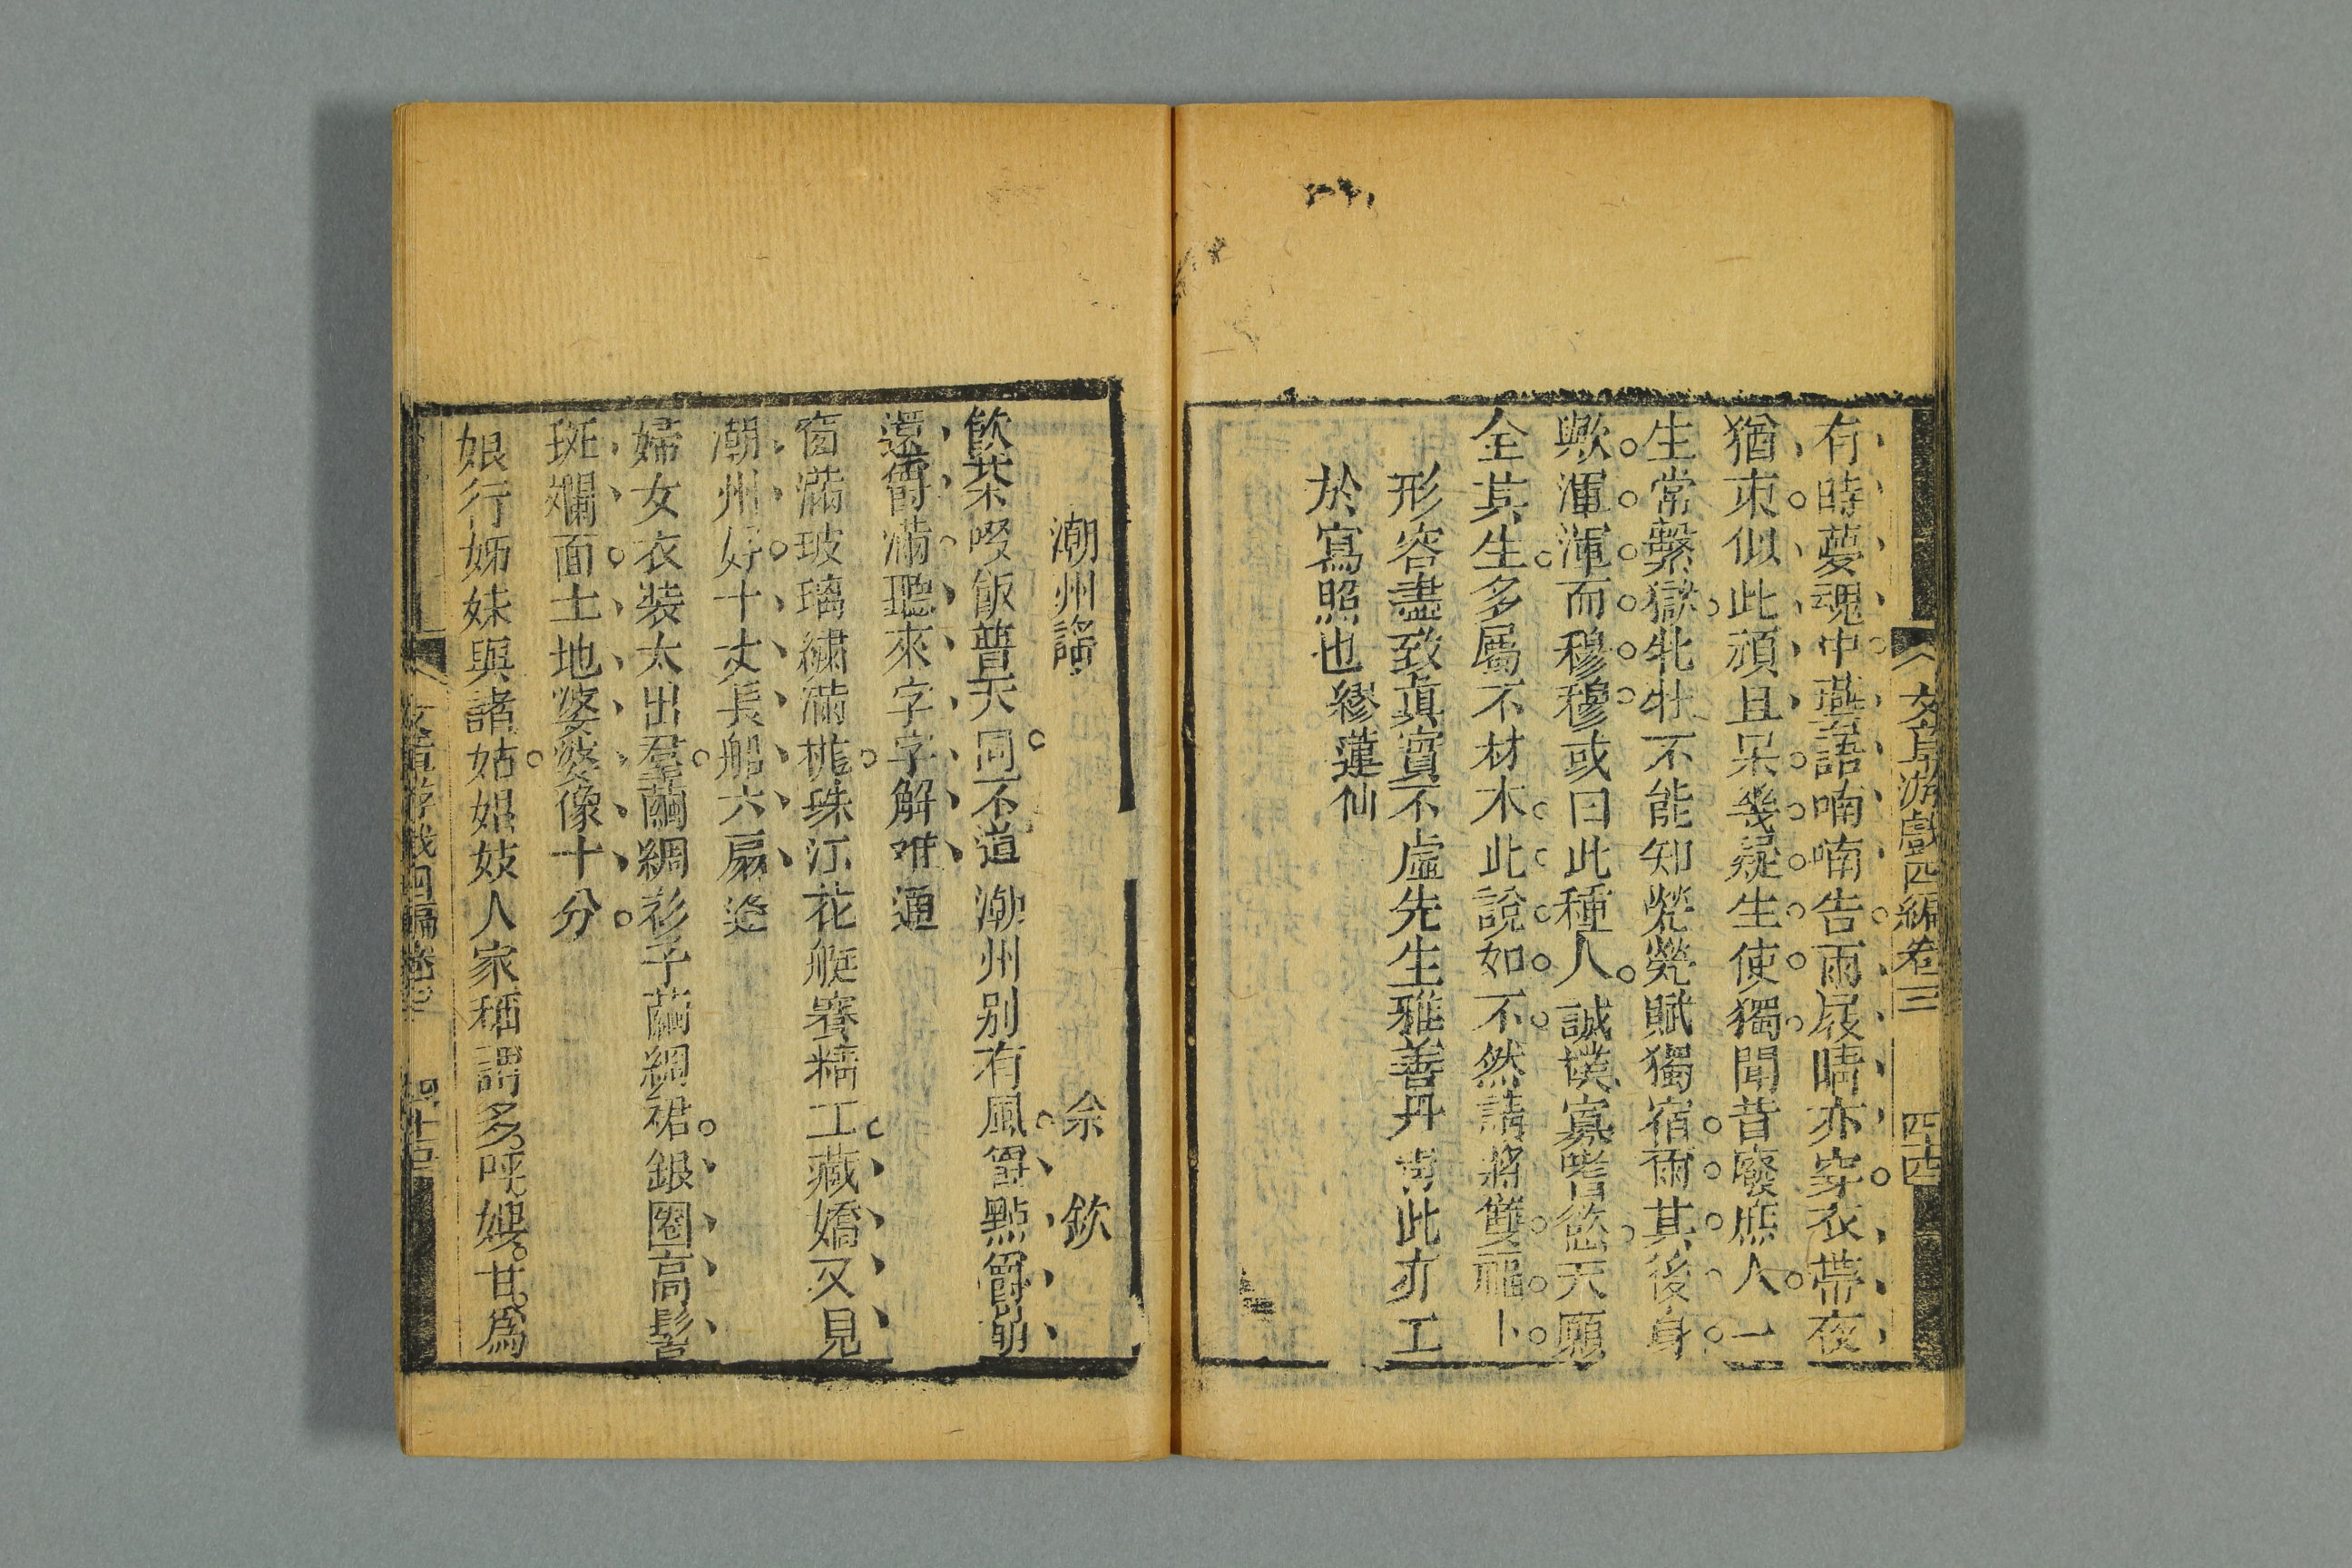 文章游戲四編卷三　四十四
有時夢魂中囈語喃喃告雨屐晴亦穿衣帶夜
猶束似此頑且呆幾疑生使獨聞昔廢庶人一
生常繫獄牝牡不能知煢煢賦獨宿爾其後身
歟渾渾而穆穆或曰此種人誠樸寡嗜慾天願
全其生多屬不材木此說如不然請將雙福卜
形容盡致真實不虛先生雅善丹青此亦工
於寫照也繆蓮仙
潮州謠　佘欽
飲茶啜飯普天同不道潮州別有風
還爵滿聽來字字解難通
窗滿玻璃繡滿桃珠江花艇賽精工藏嬌又見
潮州好十丈長船六扇篷
婦女衣裝太出羣繭綢衫子繭綢裙銀圈高髻
斑斕面土地婆婆像十分
娘行姊妹與諸姑娼妓人家稱謂多呼嫂甘為
文章游戲四編卷三　四十五